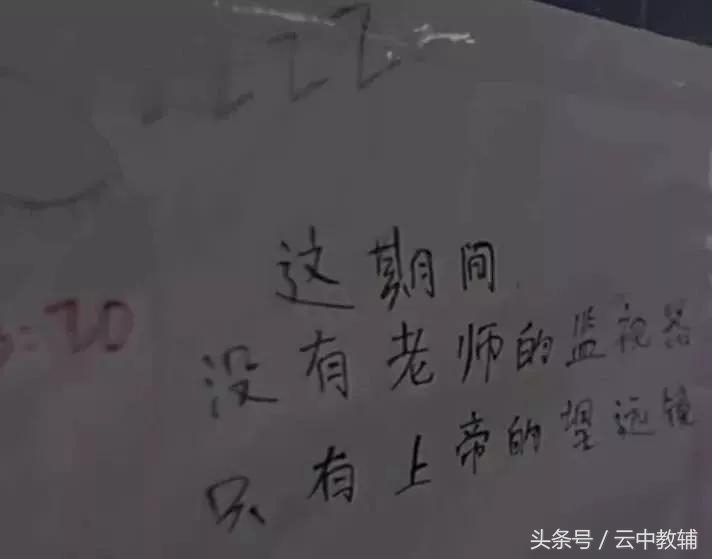 ZZZ
这期间
:20
没有老师的监视器
只有上帝的望远镜
头条号 / 云中教辅